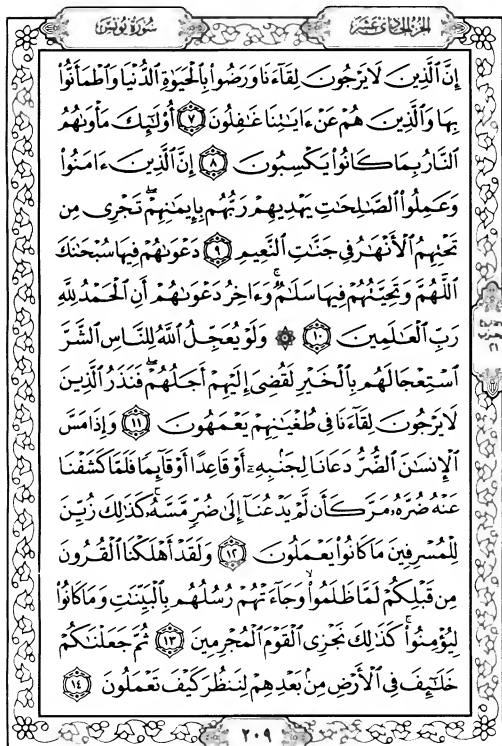 سُورَةُ يُونُسَ الجزء الحادي عشر
إِنَّ ٱلَّذِينَ لَا يَرْجُونَ لِقَآءَنَا وَرَضُوا۟ بِٱلْحَيَوٰةِ ٱلدُّنْيَا وَٱطْمَأَنُّوا۟
بِهَا وَٱلَّذِينَ هُمْ عَنْ ءَايَٰتِنَا غَٰفِلُونَ ٧ أُو۟لَٰٓئِكَ مَأْوَىٰهُمُ
ٱلنَّارُ بِمَا كَانُوا۟ يَكْسِبُونَ ٨ إِنَّ ٱلَّذِينَ ءَامَنُوا۟
وَعَمِلُوا۟ ٱلصَّٰلِحَٰتِ يَهْدِيهِمْ رَبُّهُم بِإِيمَٰنِهِمْ ۖ تَجْرِى مِن
تَحْتِهِمُ ٱلْأَنْهَٰرُ فِى جَنَّٰتِ ٱلنَّعِيمِ ٩ دَعْوَىٰهُمْ فِيهَا سُبْحَٰنَكَ
ٱللَّهُمَّ وَتَحِيَّتُهُمْ فِيهَا سَلَٰمٌ ۚ وَءَاخِرُ دَعْوَىٰهُمْ أَنِ ٱلْحَمْدُ لِلَّهِ
رَبِّ ٱلْعَٰلَمِينَ ١٠ ۞ وَلَوْ يُعَجِّلُ ٱللَّهُ لِلنَّاسِ ٱلشَّرَّ
ٱسْتِعْجَالَهُم بِٱلْخَيْرِ لَقُضِىَ إِلَيْهِمْ أَجَلُهُمْ ۖ فَنَذَرُ ٱلَّذِينَ
لَا يَرْجُونَ لِقَآءَنَا فِى طُغْيَٰنِهِمْ يَعْمَهُونَ ١١ وَإِذَا مَسَّ
ٱلْإِنسَٰنَ ٱلضُّرُّ دَعَانَا لِجَنۢبِهِۦٓ أَوْ قَاعِدًا أَوْ قَآئِمًا فَلَمَّا كَشَفْنَا
عَنْهُ ضُرَّهُۥ مَرَّ كَأَن لَّمْ يَدْعُنَآ إِلَىٰ ضُرٍّ مَّسَّهُۥ ۚ كَذَٰلِكَ زُيِّنَ
لِلْمُسْرِفِينَ مَا كَانُوا۟ يَعْمَلُونَ ١٢ وَلَقَدْ أَهْلَكْنَا ٱلْقُرُونَ
مِن قَبْلِكُمْ لَمَّا ظَلَمُوا۟ ۙ وَجَآءَتْهُمْ رُسُلُهُم بِٱلْبَيِّنَٰتِ وَمَا كَانُوا۟
لِيُؤْمِنُوا۟ ۚ كَذَٰلِكَ نَجْزِى ٱلْقَوْمَ ٱلْمُجْرِمِينَ ١٣ ثُمَّ جَعَلْنَٰكُمْ
خَلَٰٓئِفَ فِى ٱلْأَرْضِ مِنۢ بَعْدِهِمْ لِنَنظُرَ كَيْفَ تَعْمَلُونَ ١٤
٢٠٩